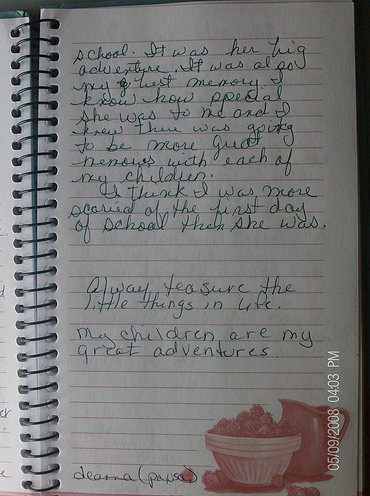 school. It was her big
adventure. It was also
my great memory. I
know how special
she was to me and I
knew there was going
to be more great
memous with each of
my children.
I think I was more
scaried of the first day
of school then she was.
Alway teasure the
little things in life.
My children are my
great adventures.
deanna (
05/09/2008 04:03 PM